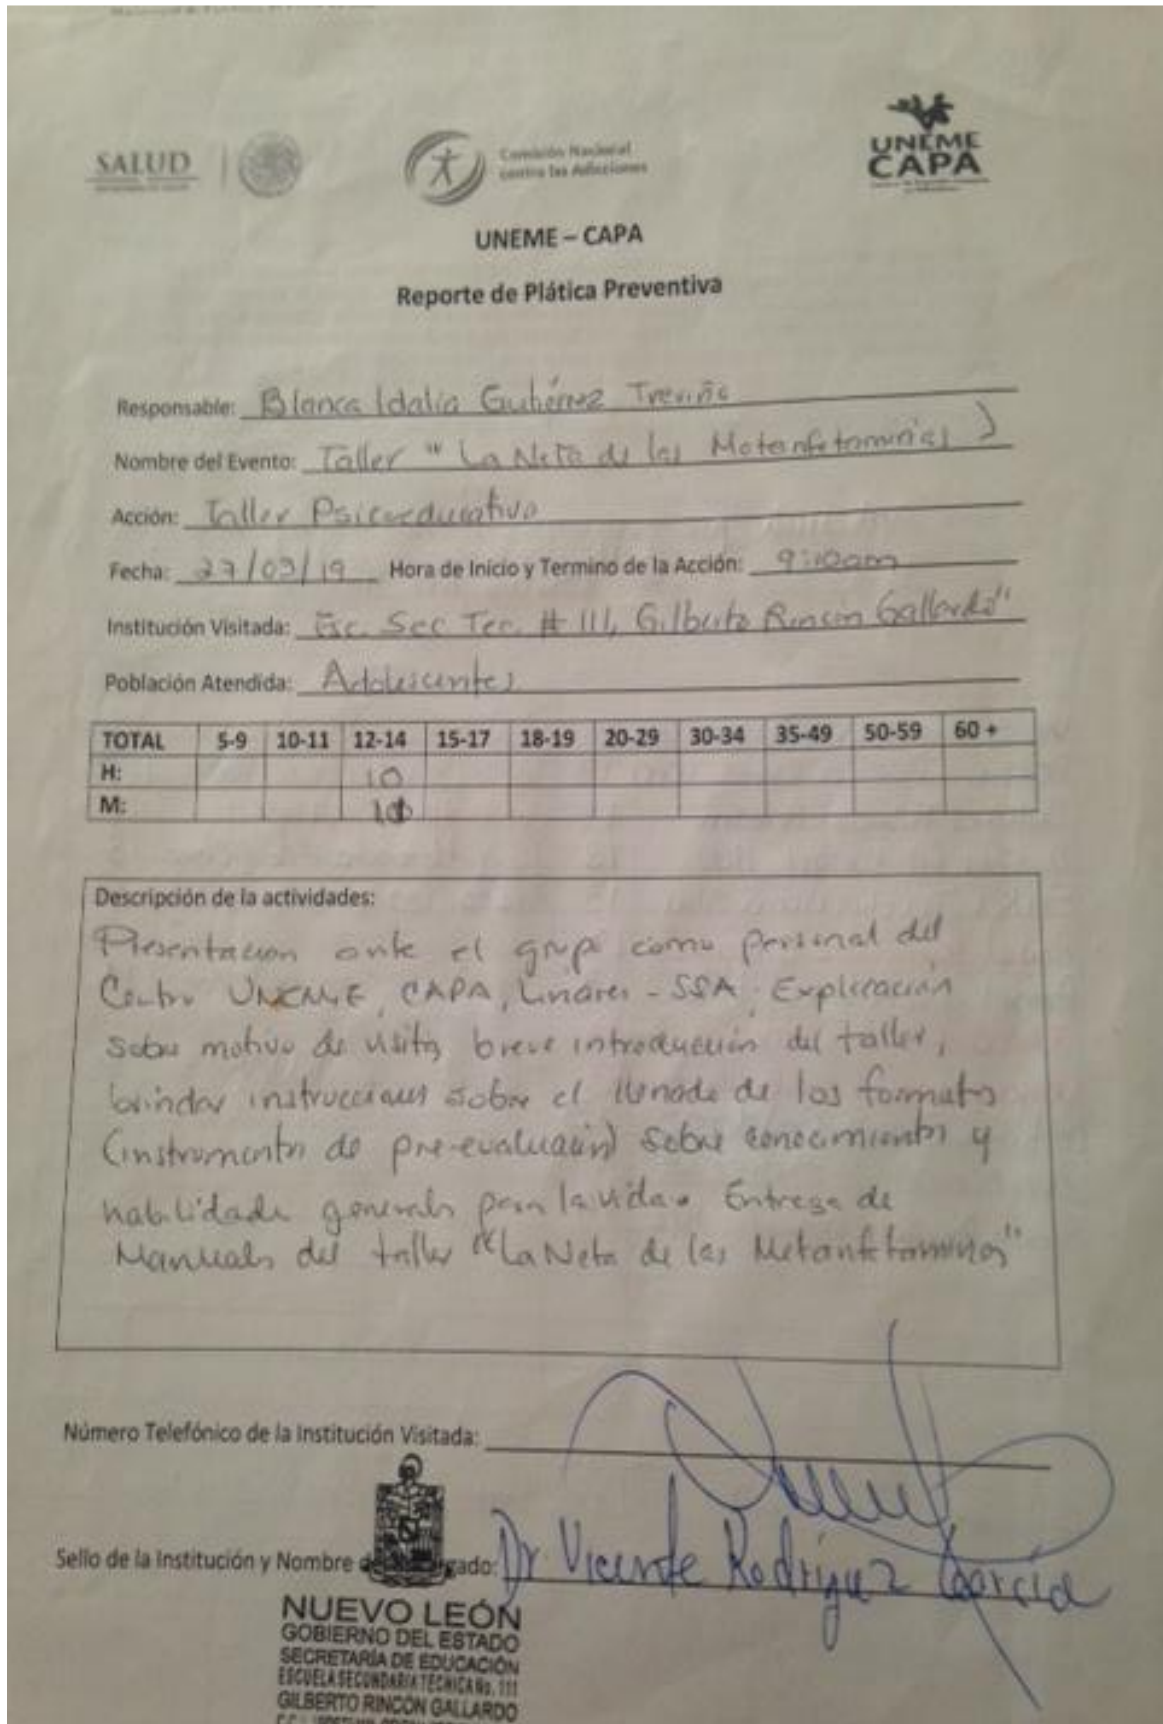 SALUD
Comisión Nacional
contra las Adicciones
UNEME
CAPA
UNEME – CAPA
Reporte de Plática Preventiva
Responsable: Blanca Idalia Gutiérrez Treviño
Nombre del Evento: Taller "La Neta de las Metanfetaminas"
Acción: Taller Psicoeducativo
Fecha: 27/03/19 Hora de Inicio y Termino de la Acción: 9:10am
Institución Visitada: Esc. Sec Tec. # 111, Gilberto Rincón Gallardo"
Población Atendida: Adolescentes
TOTAL 5-9 10-11 12-14 15-17 18-19 20-29 30-34 35-49 50-59 60 +
H: 10
M:
Descripción de la actividades:
Presentacion ante el grupo como personal del
Centro UNEME, CAPA, Linares - SSA. Explicación
sobre motivo de visita, breve introducción del taller,
brindar instrucciones sobre el llenado de los formatos
(instrumentos de pre-evaluación) sobre conocimientos y
habilidades generales para la vida. Entrega de
Manuales del taller "La Neta de las Metanfetaminas"
Número Telefónico de la Institución Visitada:
Sello de la Institución y Nombre gado: Dr Vicente Rodríguez García
NUEVO LEÓN
GOBIERNO DEL ESTADO
SECRETARÍA DE EDUCACIÓN
ESCUELA SECUNDARIA TÉCNICA No. 111
GILBERTO RINCÓN GALLARDO